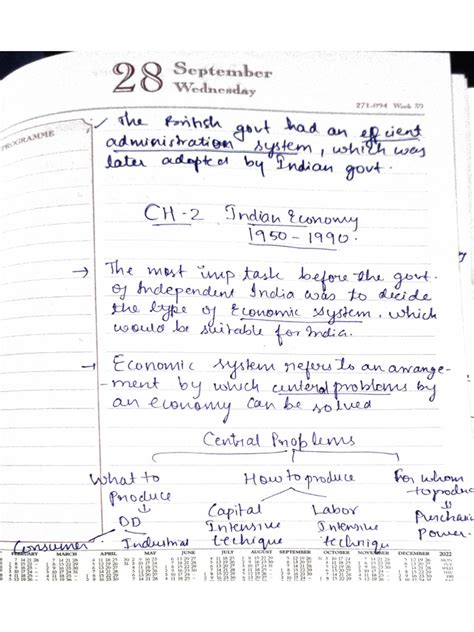 28 September
Wednesday
271-094 Week 39
PROGRAMME
✓ The British govt had an efficient
administration system, which was
later adopted by Indian govt.
CH-2 Indian Economy
1950-1990.
→ The most imp task before the govt.
of Independent India was to decide
the type of Economic System, which
would be suitable for India.
→ Economic system refers to an arrange-
ment by which central problems by
an economy can be solved
Central Problems
What to How to produce For whom
Produce to produce
↓ Capital Labor ↓
DD Intensive Intensive Purchasing
Consumer Industrial techique techniq Power.
FEBRUARY MARCH APRIL MAY JUNE JULY AUGUST SEPTEMBER OCTOBER NOVEMBER DECEMBER 2022